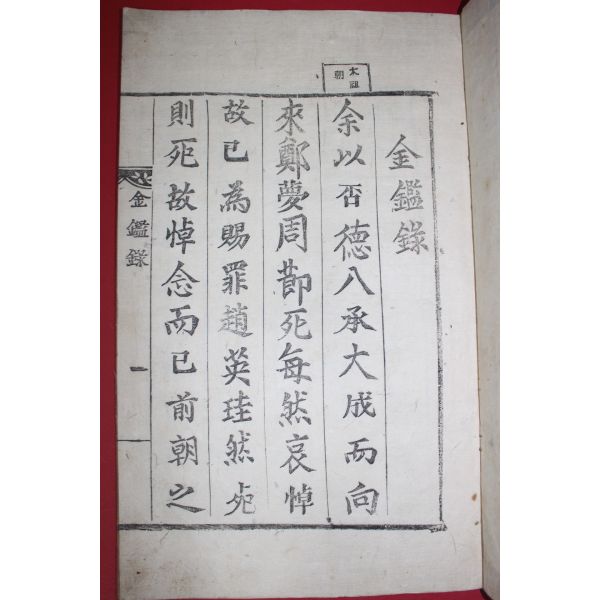 太祖
朝
金鑑錄
余以否德八承大成而向
來鄭夢周節死每然哀悼
故已為賜罪趙英珪然死
則死故悼念而已前朝之
金鑑錄 一